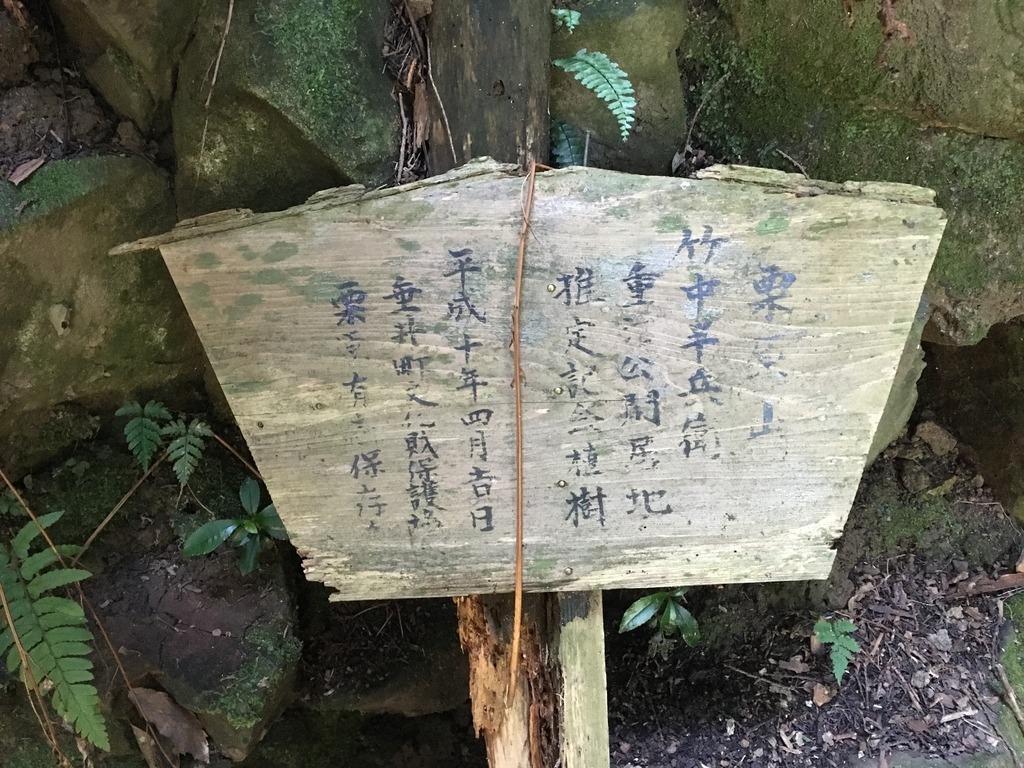 栗原山
竹中半兵衛
重治公閑居地
推定記念植樹
平成十年四月吉日
垂井町文化財保護協
栗原有志保存